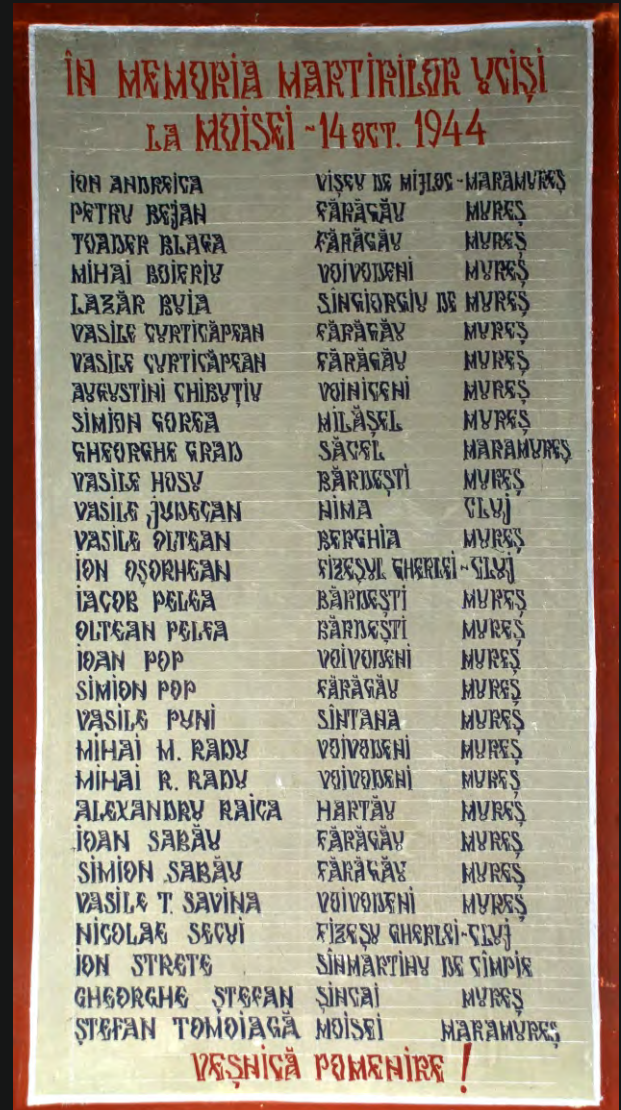 ÎN MEMORIA MARTIRILOR UCIȘI
LA MOISEI - 14 OCT. 1944
ION ANDREICA VIȘEU DE MIJLOC - MARAMUREȘ
PETRU BEJAN FĂRĂGĂU MUREȘ
TOADER BLAGA FĂRĂGĂU MUREȘ
MIHAI BOIERIU VOIVODENI MUREȘ
LAZĂR BUIA SINGIORGIU DE MUREȘ
VASILE CURTICĂPEAN FĂRĂGĂU MUREȘ
VASILE CURTICĂPEAN FĂRĂGĂU MUREȘ
AUGUSTINI CHIBUȚIU VOINICENI MUREȘ
SIMION GOREA MILĂȘEL MUREȘ
GHEORGHE GRAD SĂCEL MARAMUREȘ
VASILE HOSU BĂRDEȘTI MUREȘ
VASILE JUDECAN NIMA CLUJ
VASILE OLTEAN BERGHIA MUREȘ
ION OȘORHEAN FIZEȘUL GHERLEI - CLUJ
IACOB PELEA BĂRDEȘTI MUREȘ
OLTEAN PELEA BĂRDEȘTI MUREȘ
IOAN POP VOIVODENI MUREȘ
SIMION POP FĂRĂGĂU MUREȘ
VASILE PUNI SÎNTANA MUREȘ
MIHAI M. RADU VOIVODENI MUREȘ
MIHAI R. RADU VOIVODENI MUREȘ
ALEXANDRU RAICA HARTĂU MUREȘ
IOAN SABĂU FĂRĂGĂU MUREȘ
SIMION SABĂU FĂRĂGĂU MUREȘ
VASILE T. SAVINA VOIVODENI MUREȘ
NICOLAE SECUI FIZEȘU GHERLEI - CLUJ
ION STRETE SÎNMARTINU DE CÎMPIE
GHEORGHE ȘTEFAN ȘINCAI MUREȘ
ȘTEFAN TOMOIAGĂ MOISEI MARAMUREȘ
VEȘNICĂ POMENIRE!